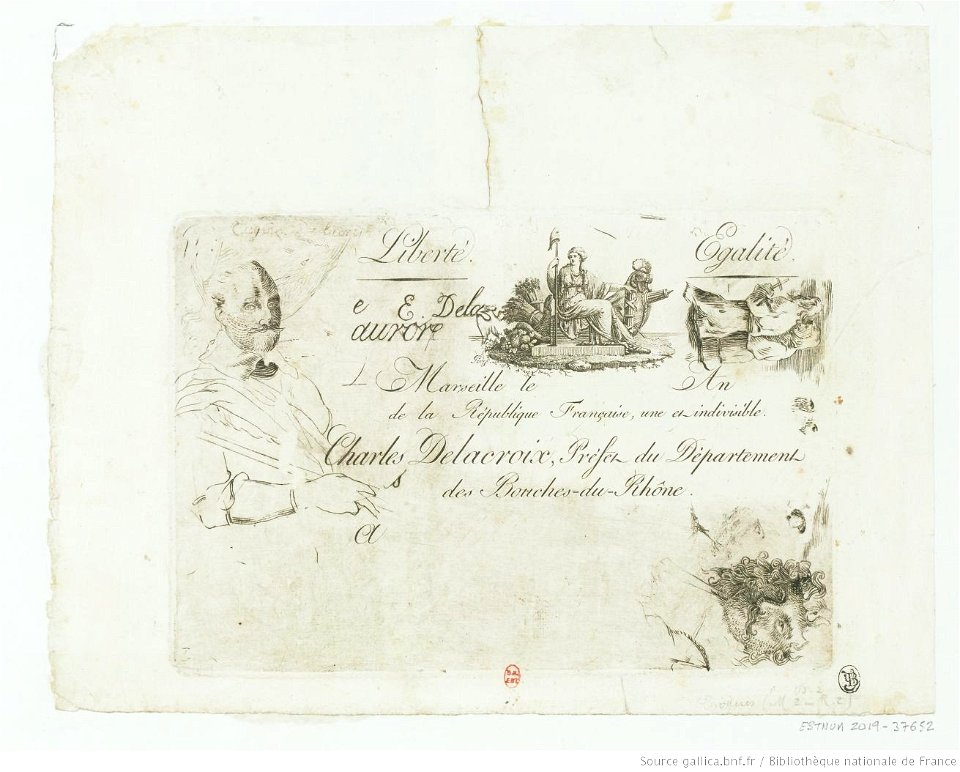 Liberté. Egalité.
e E Dela
aurore
Marseille le An
de la République Française, une et indivisible.
Charles Delacroix, Préfet du Département
des Bouches-du-Rhône.
a
ESTNUM 2019-37652
Source gallica.bnf.fr / Bibliothèque nationale de France